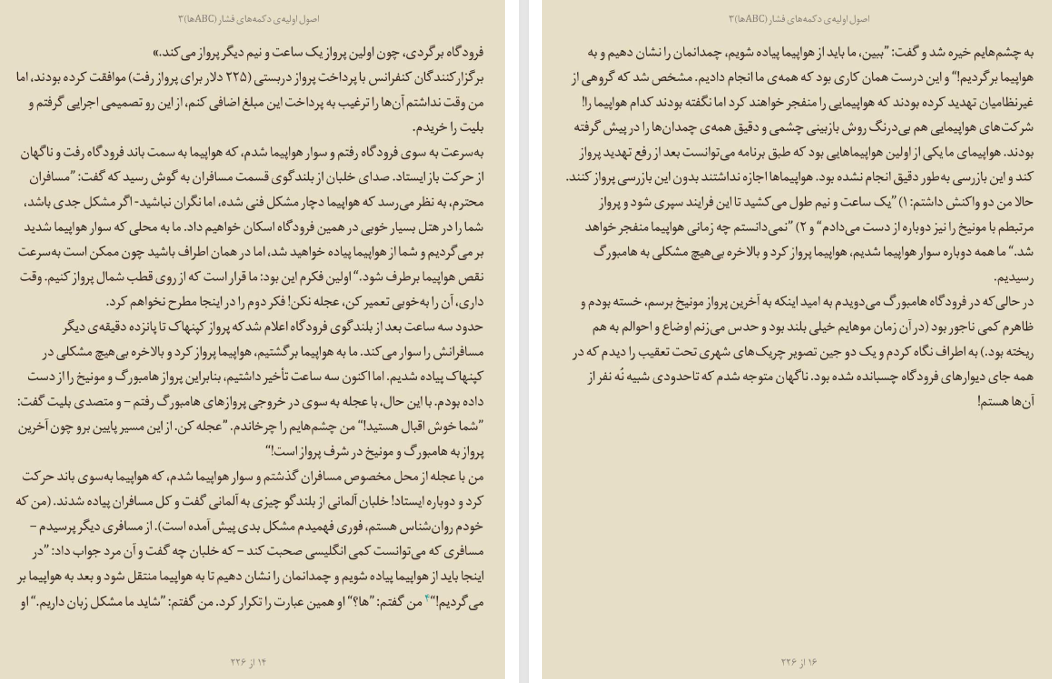 اصول اولیه‌ی دکمه‌های فشار (ABCها)۳
فرودگاه برگردی، چون اولین پرواز یک ساعت و نیم دیگر پرواز می‌کند.»
برگزارکنندگان کنفرانس با پرداخت پرواز دربستی (۲۲۵ دلار برای پرواز رفت) موافقت کرده بودند، اما
من وقت نداشتم آن‌ها را ترغیب به پرداخت این مبلغ اضافی کنم، از این رو تصمیمی اجرایی گرفتم و
بلیت را خریدم.
به‌سرعت به سوی فرودگاه رفتم و سوار هواپیما شدم، که هواپیما به سمت باند فرودگاه رفت و ناگهان
از حرکت باز ایستاد. صدای خلبان از بلندگوی قسمت مسافران به گوش رسید که گفت: ”مسافران
محترم، به نظر می‌رسد که هواپیما دچار مشکل فنی شده، اما نگران نباشید- اگر مشکل جدی باشد،
شما را در هتل بسیار خوبی در همین فرودگاه اسکان خواهیم داد. ما به محلی که سوار هواپیما شدید
بر می‌گردیم و شما از هواپیما پیاده خواهید شد، اما در همان اطراف باشید چون ممکن است به‌سرعت
نقص هواپیما برطرف شود.“ اولین فکرم این بود: ما قرار است که از روی قطب شمال پرواز کنیم. وقت
داری، آن را به‌خوبی تعمیر کن، عجله نکن! فکر دوم را در اینجا مطرح نخواهم کرد.
حدود سه ساعت بعد از بلندگوی فرودگاه اعلام شد که پرواز کپنهاک تا پانزده دقیقه‌ی دیگر
مسافرانش را سوار می‌کند. ما به هواپیما برگشتیم، هواپیما پرواز کرد و بالاخره بی‌هیچ مشکلی در
کپنهاک پیاده شدیم. اما اکنون سه ساعت تأخیر داشتیم، بنابراین پرواز هامبورگ و مونیخ را از دست
داده بودم. با این حال، با عجله به سوی در خروجی پروازهای هامبورگ رفتم – و متصدی بلیت گفت:
”شما خوش اقبال هستید!“ من چشم‌هایم را چرخاندم. ”عجله کن. از این مسیر پایین برو چون آخرین
پرواز به هامبورگ و مونیخ در شرف پرواز است!“
من با عجله از محل مخصوص مسافران گذشتم و سوار هواپیما شدم، که هواپیما به‌سوی باند حرکت
کرد و دوباره ایستاد! خلبان آلمانی از بلندگو چیزی به آلمانی گفت و کل مسافران پیاده شدند. (من که
خودم روان‌شناس هستم، فوری فهمیدم مشکل بدی پیش آمده است). از مسافری دیگر پرسیدم –
مسافری که می‌توانست کمی انگلیسی صحبت کند – که خلبان چه گفت و آن مرد جواب داد: ”در
اینجا باید از هواپیما پیاده شویم و چمدانمان را نشان دهیم تا به هواپیما منتقل شود و بعد به هواپیما بر
می‌گردیم!“۴ من گفتم: ”ها؟“ او همین عبارت را تکرار کرد. من گفتم: ”شاید ما مشکل زبان داریم.“ او
۱۴ از ۲۲۶
اصول اولیه‌ی دکمه‌های فشار (ABCها)۳
به چشم‌هایم خیره شد و گفت: ”ببین، ما باید از هواپیما پیاده شویم، چمدانمان را نشان دهیم و به
هواپیما برگردیم!“ و این درست همان کاری بود که همه‌ی ما انجام دادیم. مشخص شد که گروهی از
غیرنظامیان تهدید کرده بودند که هواپیمایی را منفجر خواهند کرد اما نگفته بودند کدام هواپیما را!
شرکت‌های هواپیمایی هم بی‌درنگ روش بازبینی چشمی و دقیق همه‌ی چمدان‌ها را در پیش گرفته
بودند. هواپیمای ما یکی از اولین هواپیماهایی بود که طبق برنامه می‌توانست بعد از رفع تهدید پرواز
کند و این بازرسی به‌طور دقیق انجام نشده بود. هواپیماها اجازه نداشتند بدون این بازرسی پرواز کنند.
حالا من دو واکنش داشتم: ۱) ”یک ساعت و نیم طول می‌کشید تا این فرایند سپری شود و پرواز
مرتبطم با مونیخ را نیز دوباره از دست می‌دادم“ و ۲) ”نمی‌دانستم چه زمانی هواپیما منفجر خواهد
شد.“ ما همه دوباره سوار هواپیما شدیم، هواپیما پرواز کرد و بالاخره بی‌هیچ مشکلی به هامبورگ
رسیدیم.
در حالی که در فرودگاه هامبورگ می‌دویدم به امید اینکه به آخرین پرواز مونیخ برسم، خسته بودم و
ظاهرم کمی ناجور بود (در آن زمان موهایم خیلی بلند بود و حدس می‌زنم اوضاع و احوالم به هم
ریخته بود.) به اطراف نگاه کردم و یک دو جین تصویر چریک‌های شهری تحت تعقیب را دیدم که در
همه جای دیوارهای فرودگاه چسبانده شده بود. ناگهان متوجه شدم که تاحدودی شبیه نُه نفر از
آن‌ها هستم!
۱۶ از ۲۲۶